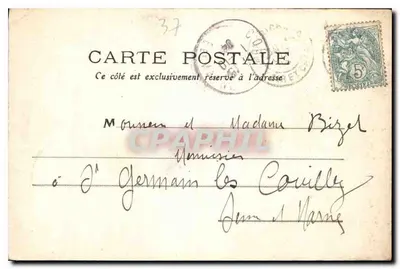 37
CARTE POSTALE
Ce côté est exclusivement réservé à l'adresse
5
Monsieur et Madame Bizet
CPARAMA
Menuisier
à St Germain les Couilly
Seine et Marne